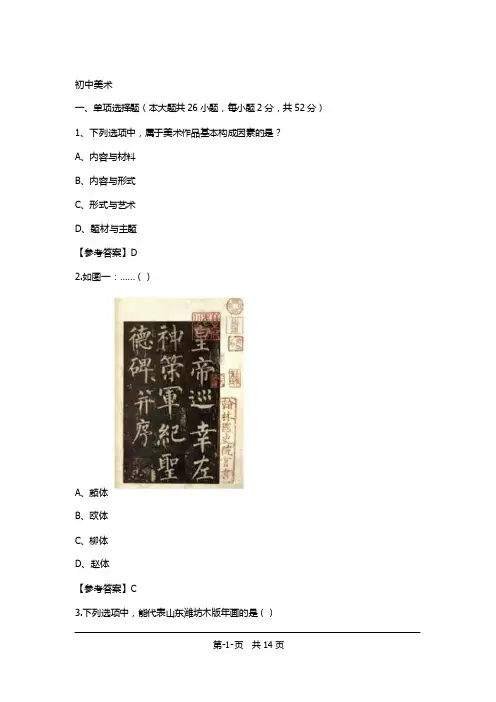 初中美术
一、单项选择题（本大题共26小题，每小题2分，共52分）
1、下列选项中，属于美术作品基本构成因素的是？
A、内容与材料
B、内容与形式
C、形式与艺术
D、题材与主题
【参考答案】D
2.如图一：……（）
皇帝巡幸左
神策軍紀聖
德碑并序
翰林國史院官書
A、颜体
B、欧体
C、柳体
D、赵体
【参考答案】C
3.下列选项中，能代表山东潍坊木版年画的是（）
第-1-页 共14页